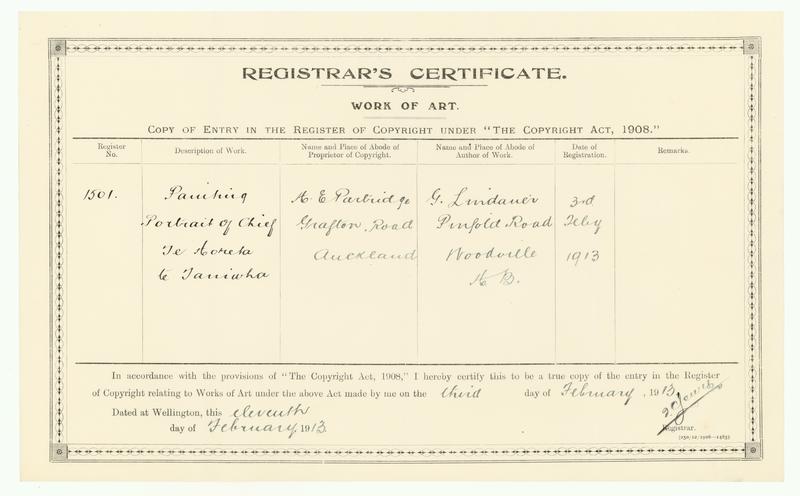 REGISTRAR'S CERTIFICATE.
WORK OF ART.
COPY OF ENTRY IN THE REGISTER OF COPYRIGHT UNDER "THE COPYRIGHT ACT, 1908."
Register No.
Description of Work.
Name and Place of Abode of Proprietor of Copyright.
Name and Place of Abode of Author of Work.
Date of Registration.
Remarks.
1501. Painting H E Partridge G. Lindauer 3rd
Portrait of Chief Grafton Road Pinfold Road Feby
Te Horeta Auckland Woodville 1913
te Taniwha H B.
In accordance with the provisions of "The Copyright Act, 1908," I hereby certify this to be a true copy of the entry in the Register
of Copyright relating to Works of Art under the above Act made by me on the third day of February, 1913.
Dated at Wellington, this eleventh
day of February, 1913.
Registrar.
[250/12/1908—1485]